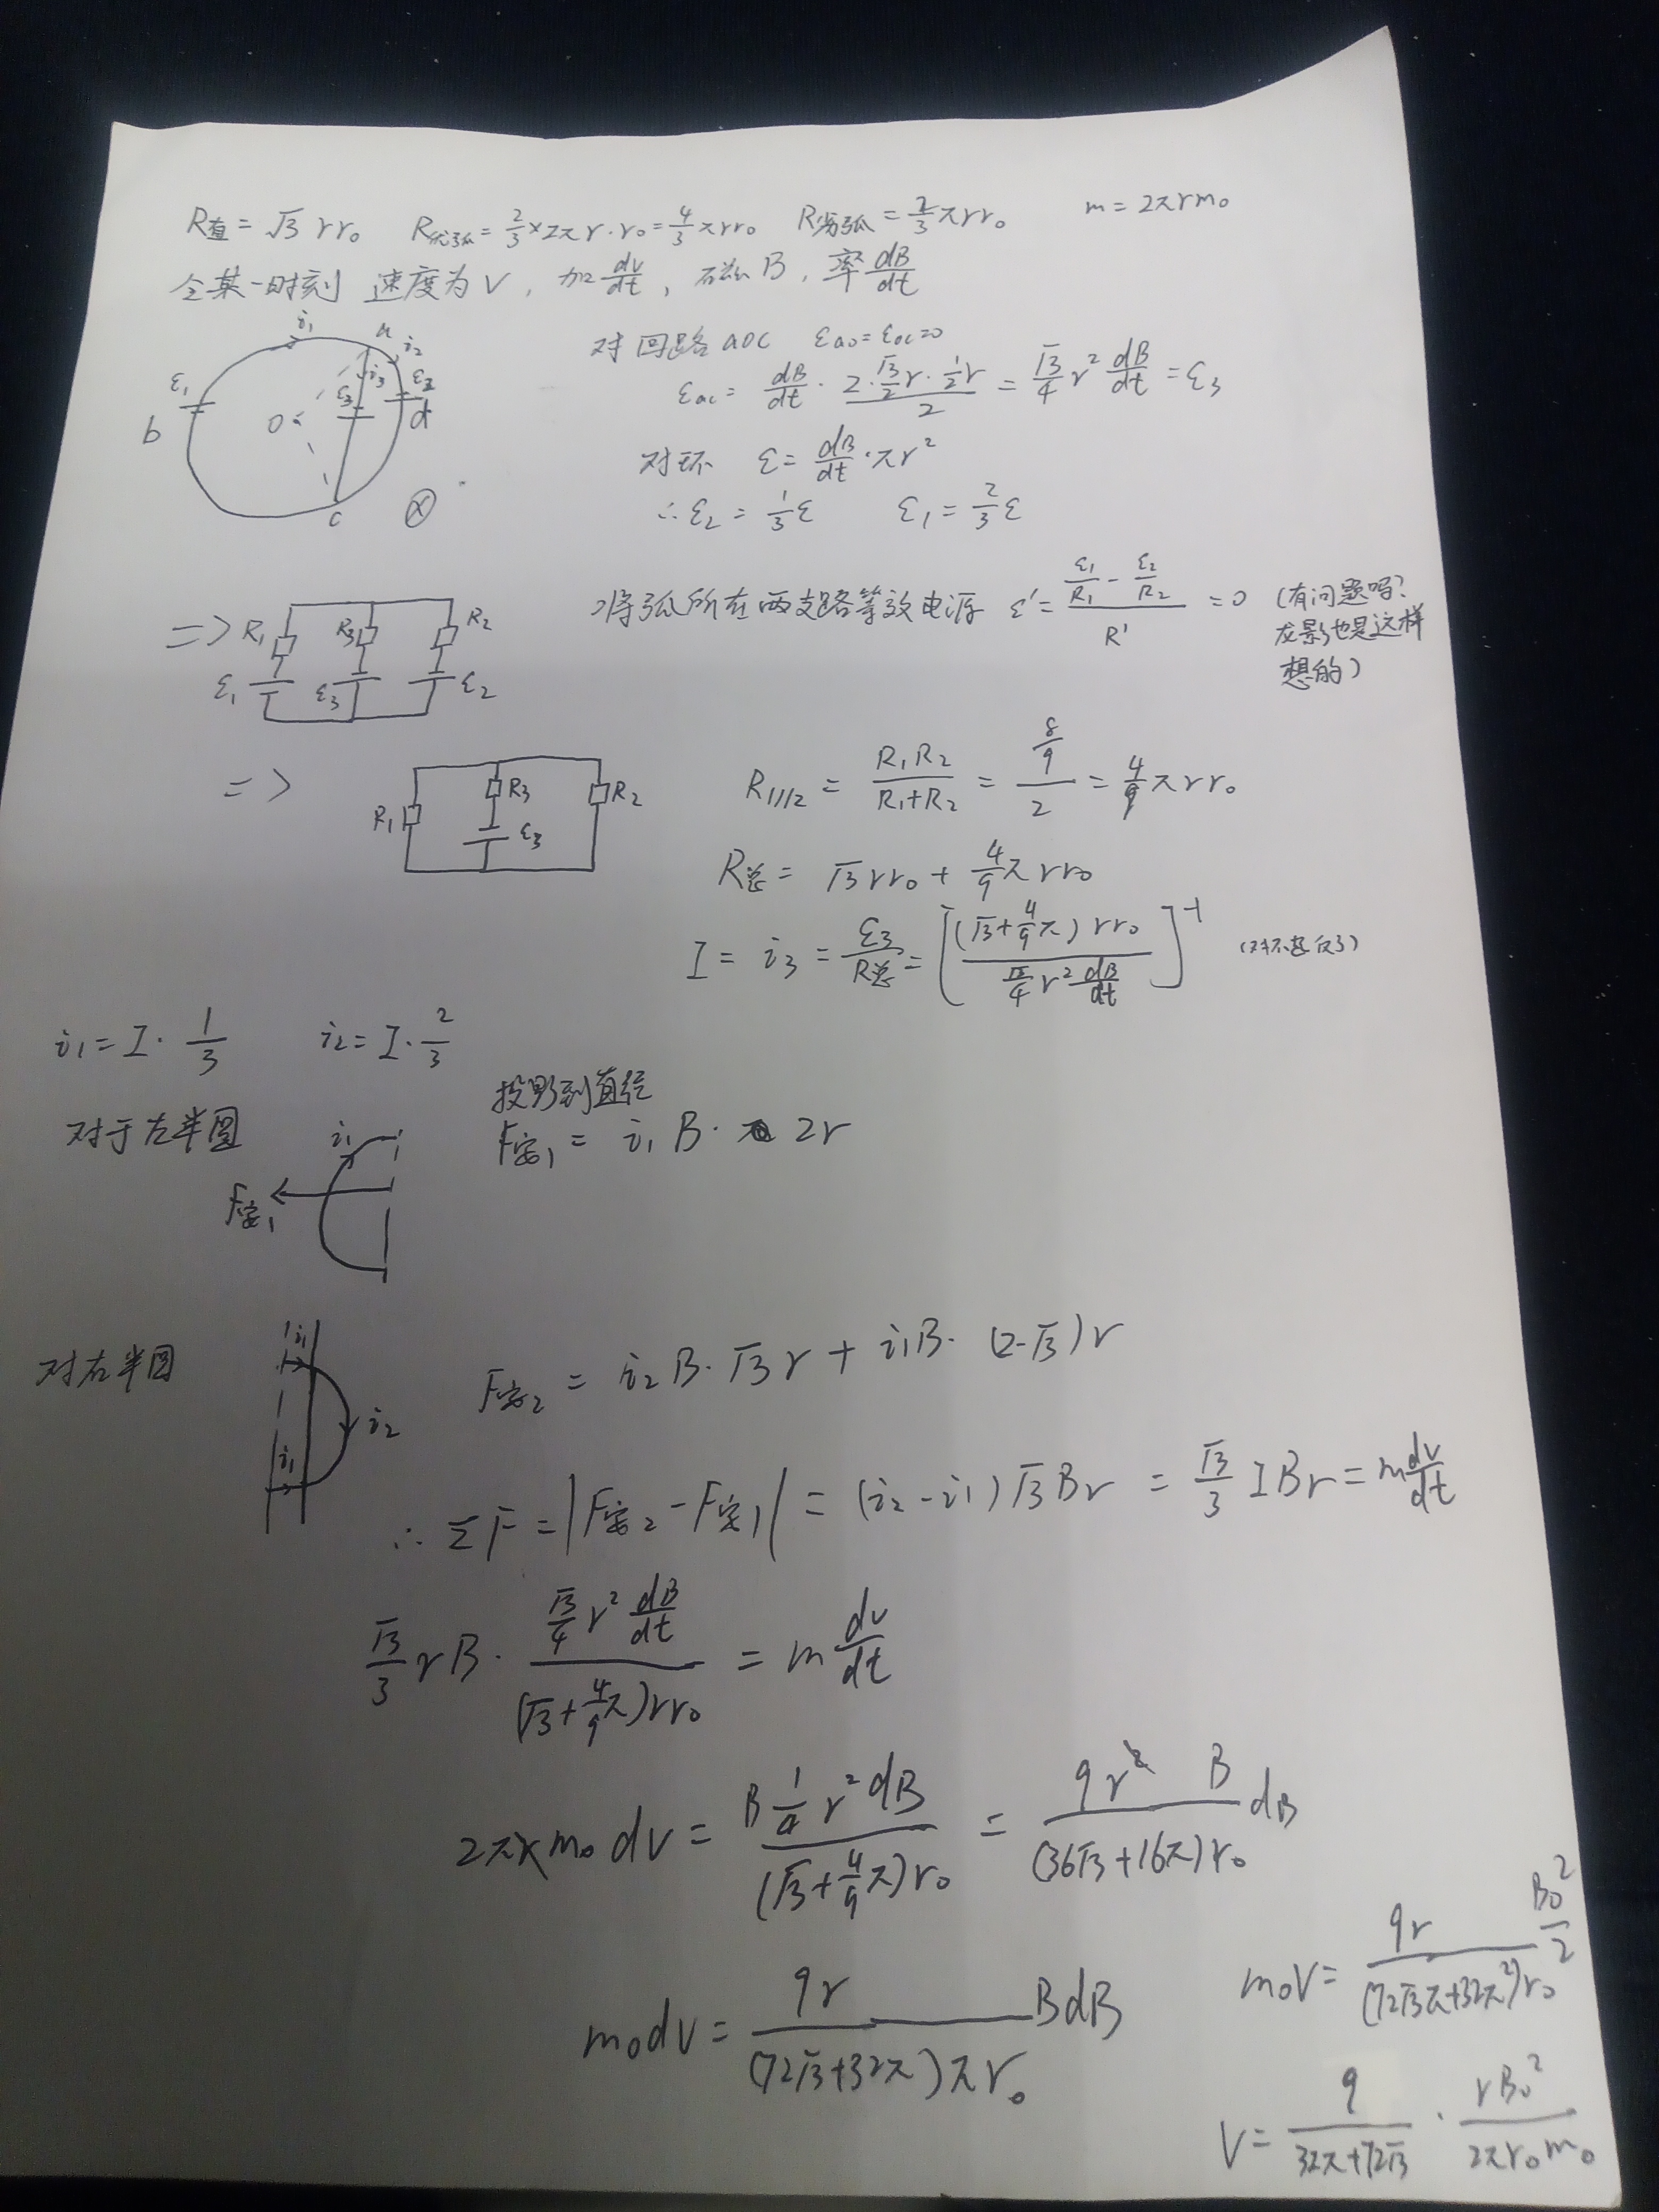 R直 = √3 r r₀  R优弧 = 2/3 × 2π r · r₀ = 4/3 π r r₀  R劣弧 = 2/3 π r r₀  m = 2π r m₀
令某一时刻 速度为 V, 加 dv/dt, 磁 B, 率 dB/dt
i₁ a i₂
ε₁ i₃ ε₃ ε₂
b O d
c ⊗
对回路 aoc ε_ao = ε_oc = 0
ε_ac = dB/dt · (2 · √3/2 r · 1/2 r)/2 = √3/4 r² dB/dt = ε₃
对环 ε = dB/dt · π r²
∴ ε₂ = 1/3 ε  ε₁ = 2/3 ε
=> R₁ R₃ R₂
ε₁ ε₃ ε₂
将弧所在两支路等效电源 ε' = (ε₁/R₁ - ε₂/R₂)/R' = 0 (有问题吗?
也是这样
想的)
=> R₁ R₃ R₂
ε₃
R₁//₂ = R₁R₂/(R₁+R₂) = (8/9)/2 = 4/9 π r r₀
R总 = √3 r r₀ + 4/9 π r r₀
I = i₃ = ε₃/R总 = [(√3 + 4/9 π) r r₀ / (√3/4 r² dB/dt)]⁻¹ (对不起 反了)
i₁ = I · 1/3  i₂ = I · 2/3
投影到直径
对于左半圆 i₁ F安₁ = i₁ B · 2r
F安₁
对右半圆 i₁ i₂ i₁ F安₂ = i₂ B · √3 r + i₁ B · (2-√3) r
∴ ΣF = |F安₂ - F安₁| = (i₂ - i₁) √3 B r = √3/3 I B r = m dv/dt
√3/3 r B · (√3/4 r² dB/dt)/((√3 + 4/9 π) r r₀) = m dv/dt
2π r m₀ dv = (B 1/4 r² dB)/((√3 + 4/9 π) r₀) = 9 r² B/((36√3 + 16π) r₀) dB
m₀ dv = 9r/((72√3 + 32π) π r₀) B dB
m₀ V = 9r/((72√3π + 32π²) r₀) B₀²/2
V = 9/(32π + 72√3) · r B₀²/(2π r₀ m₀)